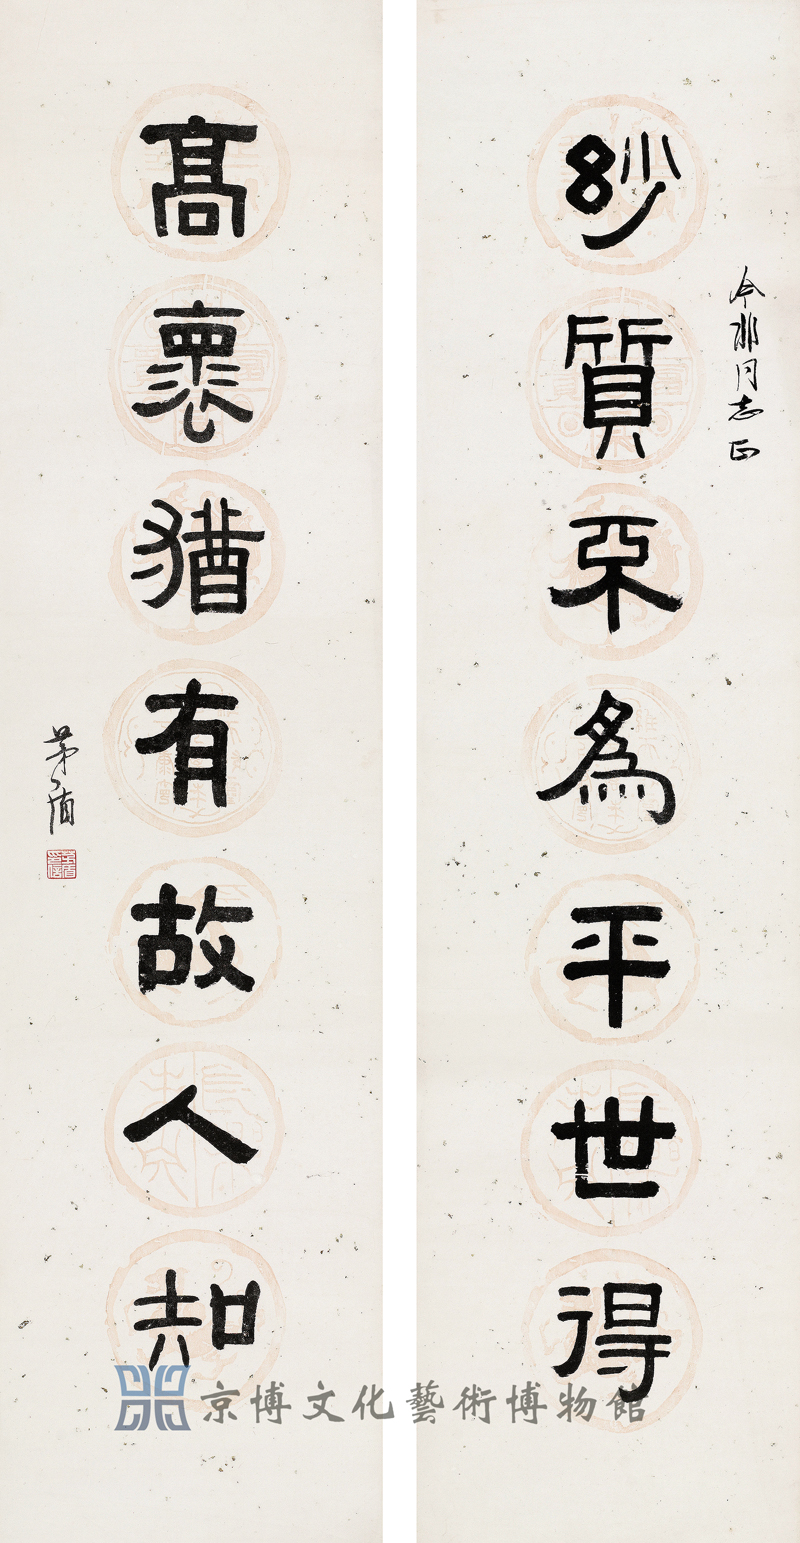 今非同志正
妙質不為平世得
高懷猶有故人知
茅盾
京博文化藝術博物館